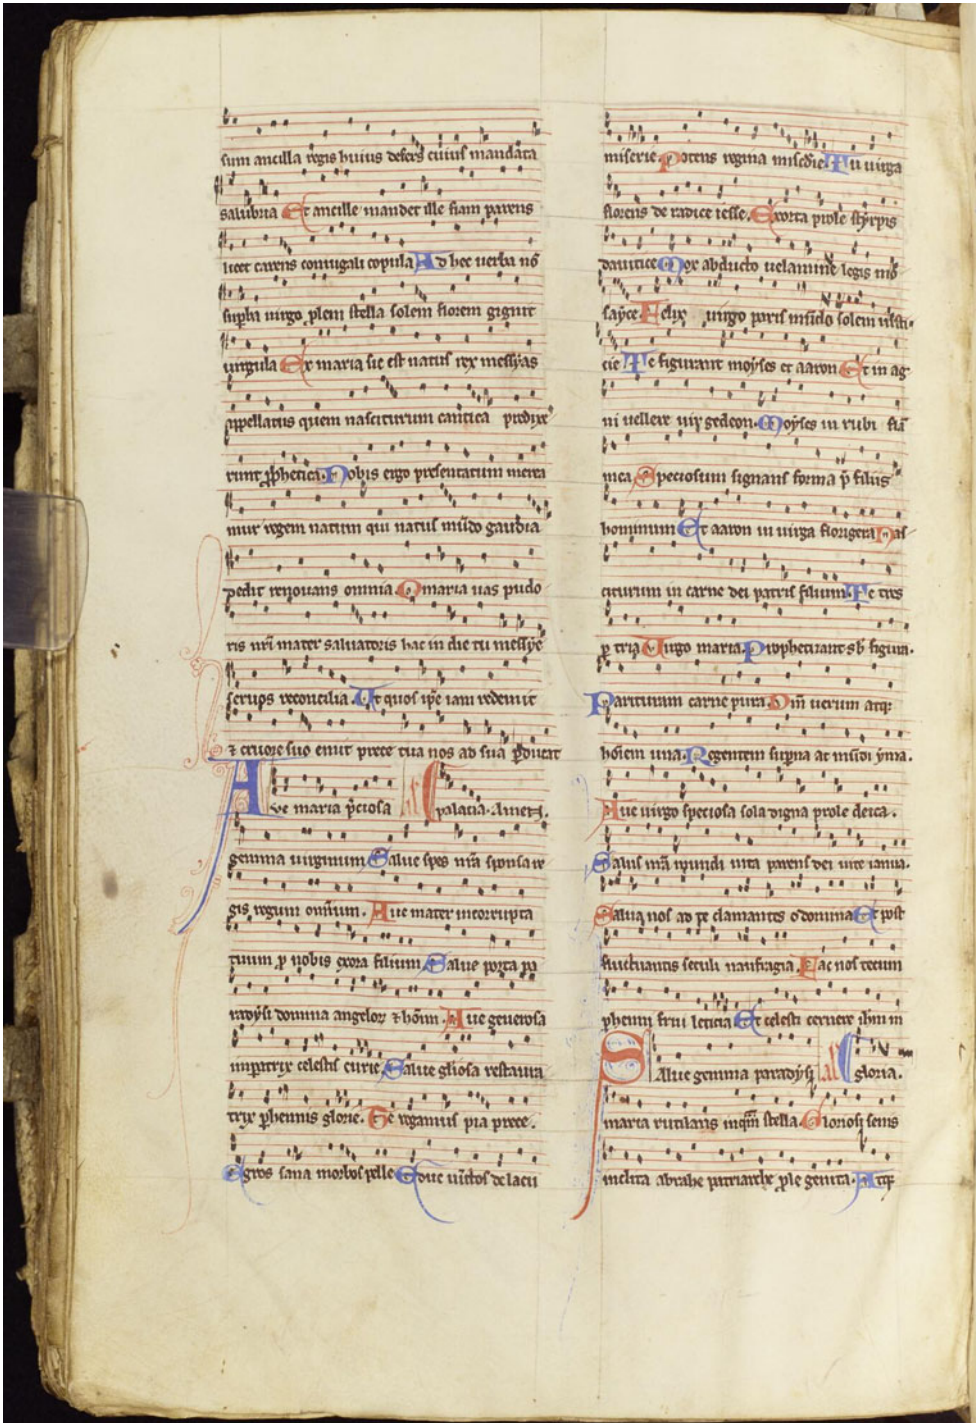 sum ancilla regis huius defers cuius mandata
salubria Et ancille mandet ille fiam parens
licet carens coniugali copula Ad hec uerba nō
supba uirgo plem stella solem florem gignit
uirgula Ex maria sic est natus rex messyas
appellatus quem nasciturum cantica predixe
runt pphetica. Nobis ergo presentatum mera
mur regem natum qui natus mūdo gaudia
dedit renouans omnia. O maria uas pudo
ris nrī mater saluatoris hac in die tu messye
seruos reconcilia. Ut quos ipe iam redemit
⁊ cruore suo emit prece tua nos ad sua pducat
Aue maria pciosa palacia. Amen.
gemma uirginum Salue spes nrā sponsa re
gis regum omīum. Aue mater incorrupta
tuum p nobis exora filium Salue porta pa
radysi domina angeloꝝ ⁊ hōīm. Aue generosa
impatrix celestis curie. Salue gliosa restaura
trix phennis glorie. Te rogamus pia prece.
Egros sana morbos pelle Educ uīctos de lacu
miserie Potens regina misc̄die Tu uirga
florens de radice iesse. Exorta prole styrpis
dauitice Mox abducto uelamine legis mo
sayce. Felix uirgo paris insido solem iusti
cie Te figurant moyses et aaron Et in ag
ni uellere uir gedeon. Moyses in rubi flā
mea Speciosum signans forma p̄ filiis
hominum Et aaron in uirga florigera Nas
citurum in carne dei patris filium. Te tres
p tria Uirgo maria. Prophetizant sb figura.
Parituram carne pura. Dm̄ uerum atq;
hoīem una. Regentem supna ac infidi yma.
Aue uirgo speciosa sola digna prole deica.
Salus nrā mundi uita parens dei uite ianua.
Salua nos ad te clamantes o domina Et post
fluctuantis seculi naufragia. Fac nos tecum
phenni frui leticia Et celesti cernere ihm in
Salue gemma paradysi gloria.
maria rutilans inqm̄ stella. Gloriosi seins
inclita abrahe patriarche ple genita. Atq;